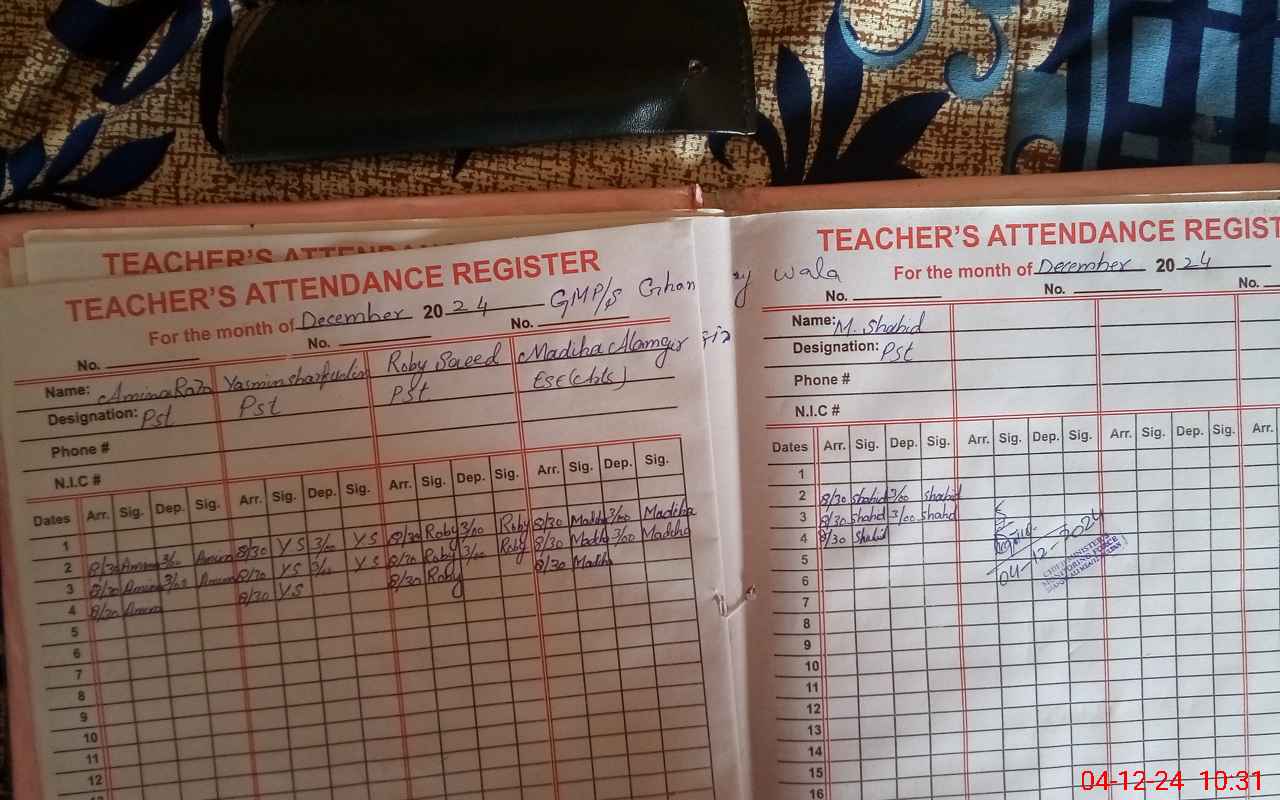 TEACHER'S ATTENDAN
TEACHER'S ATTENDANCE REGISTER
For the month of December 2024 GMP/S Ghan
No. No. No.
Name: Amina Raza Yasmin Sharfudin Roby Saeed Madiha Alamgir
Designation: Pst Pst Pst Ese(
Phone #
N.I.C #
Dates Arr. Sig. Dep. Sig. Arr. Sig. Dep. Sig. Arr. Sig. Dep. Sig. Arr. Sig. Dep. Sig.
1
2 8/30 Amina 3/00 Amina 8/30 YS 3/00 YS 8/30 Roby 3/00 Roby 8/30 Madiha 3/00 Madiha
3 8/30 Amina 3/00 Amina 8/30 YS 3/00 YS 8/30 Roby 3/00 Roby 8/30 Madiha 3/00 Madiha
4 8/30 Amina 8/30 YS 8/30 Roby 8/30 Madiha
5
6
7
8
9
10
11
12
TEACHER'S ATTENDANCE REGIST
wala
For the month of December 2024
No. No. No.
Name: M. Shahid
Designation: Pst
Phone #
N.I.C #
Dates Arr. Sig. Dep. Sig. Arr. Sig. Dep. Sig. Arr. Sig. Dep. Sig. Arr.
1
2 8/30 Shahid 3/00 Shahid
3 8/30 Shahid 3/00 Shahid
4 8/30 Shahid
5
6
7
8
9
10
11
12
13
14
15
16
04-12-2024
CHIEF MINISTER'S
MONITORING FORCE
04-12-24 10:31